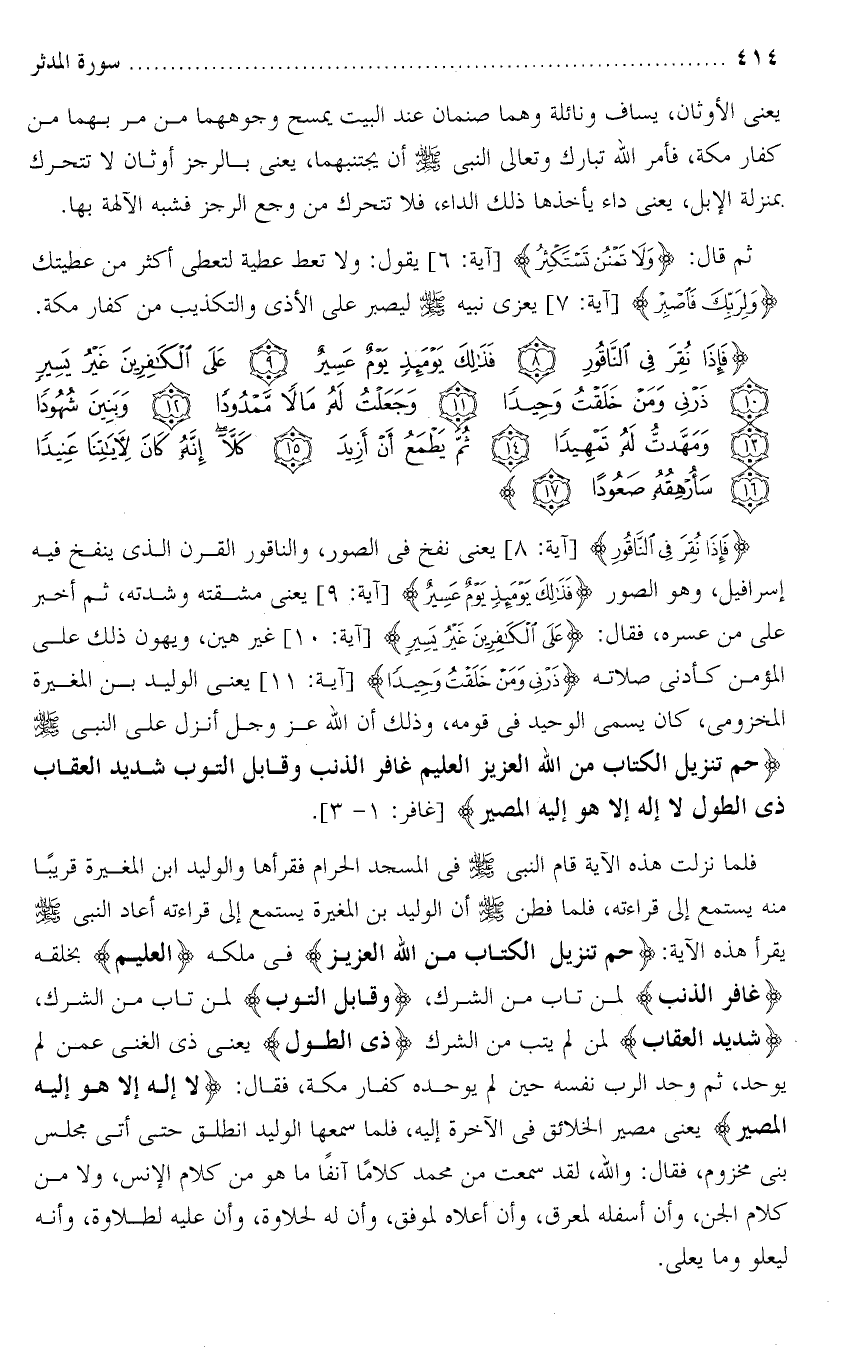 ٤١٤ ........................................................................ سورة المدثر
يعنى الأوثان، يساف ونائلة وهما صنمان عند البيت يمسح وجوههما من مر بهما من
كفار مكة، فأمر الله تبارك وتعالى النبى ﷺ أن يجتنبهما، يعنى بالرجز أوثان لا تتحرك
بمنزلة الإبل، يعنى داء يأخذها ذلك الداء، فلا تتحرك من وجع الرجز فشبه الآلهة بها.
ثم قال: ﴿وَلَا تَمْنُن تَسْتَكْثِرُ﴾ [آية: ٦] يقول: ولا تعط عطية لتعطى أكثر من عطيتك
﴿وَلِرَبِّكَ فَاصْبِرْ﴾ [آية: ٧] يعزى نبيه ﷺ ليصبر على الأذى والتكذيب من كفار مكة.
﴿فَإِذَا نُقِرَ فِى ٱلنَّاقُورِ ۝٨ فَذَٰلِكَ يَوْمَئِذٍ يَوْمٌ عَسِيرٌ ۝٩ عَلَى ٱلْكَٰفِرِينَ غَيْرُ يَسِيرٍ
۝١٠ ذَرْنِى وَمَنْ خَلَقْتُ وَحِيدًا ۝١١ وَجَعَلْتُ لَهُۥ مَالًا مَّمْدُودًا ۝١٢ وَبَنِينَ شُهُودًا
۝١٣ وَمَهَّدتُّ لَهُۥ تَمْهِيدًا ۝١٤ ثُمَّ يَطْمَعُ أَنْ أَزِيدَ ۝١٥ كَلَّآ ۖ إِنَّهُۥ كَانَ لِءَايَٰتِنَا عَنِيدًا
۝١٦ سَأُرْهِقُهُۥ صَعُودًا ۝١٧ ﴾
﴿فَإِذَا نُقِرَ فِى ٱلنَّاقُورِ﴾ [آية: ٨] يعنى نفخ فى الصور، والناقور القرن الذى ينفخ فيه
إسرافيل، وهو الصور ﴿فَذَٰلِكَ يَوْمَئِذٍ يَوْمٌ عَسِيرٌ﴾ [آية: ٩] يعنى مشقته وشدته، ثم أخبر
على من عسره، فقال: ﴿عَلَى ٱلْكَٰفِرِينَ غَيْرُ يَسِيرٍ﴾ [آية: ١٠] غير هين، ويهون ذلك على
المؤمن كأدنى صلاته ﴿ذَرْنِى وَمَنْ خَلَقْتُ وَحِيدًا﴾ [آية: ١١] يعنى الوليد بن المغيرة
المخزومى، كان يسمى الوحيد فى قومه، وذلك أن الله عز وجل أنزل على النبى ﷺ
﴿حم تنزيل الكتاب من الله العزيز العليم غافر الذنب وقابل التوب شديد العقاب
ذى الطول لا إله إلا هو إليه المصير﴾ [غافر: ١- ٣].
فلما نزلت هذه الآية قام النبى ﷺ فى المسجد الحرام فقرأها والوليد ابن المغيرة قريبًا
منه يستمع إلى قراءته، فلما فطن ﷺ أن الوليد بن المغيرة يستمع إلى قراءته أعاد النبى ﷺ
يقرأ هذه الآية: ﴿حم تنزيل الكتاب من الله العزيز﴾ فى ملكه ﴿العليم﴾ بخلقه
﴿غافر الذنب﴾ لمن تاب من الشرك، ﴿وقابل التوب﴾ لمن تاب من الشرك،
﴿شديد العقاب﴾ لمن لم يتب من الشرك ﴿ذى الطول﴾ يعنى ذى الغنى عمن لم
يوحد، ثم وحد الرب نفسه حين لم يوحده كفار مكة، فقال: ﴿لا إله إلا هو إليه
المصير﴾ يعنى مصير الخلائق فى الآخرة إليه، فلما سمعها الوليد انطلق حتى أتى مجلس
بنى مخزوم، فقال: والله، لقد سمعت من محمد كلامًا آنفًا ما هو من كلام الإنس، ولا من
كلام الجن، وأن أسفله لمعرق، وأن أعلاه لموفق، وأن له لحلاوة، وأن عليه لطلاوة، وأنه
ليعلو وما يعلى.